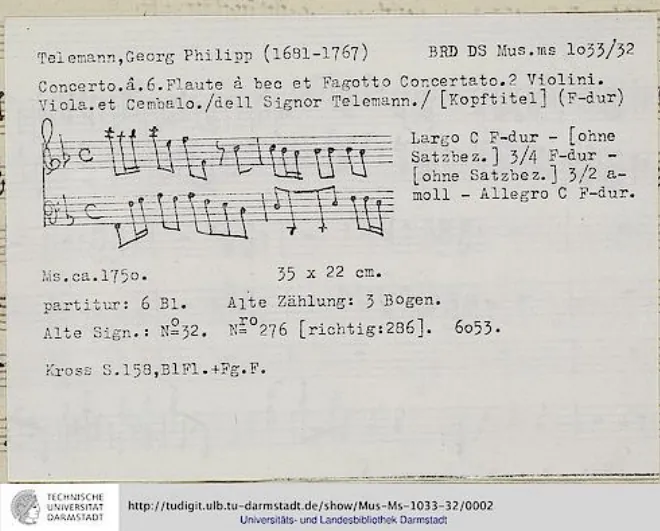 Telemann,Georg Philipp (1681-1767) BRD DS Mus.ms 1o33/32
Concerto.â.6.Flaute à bec et Fagotto Concertato.2 Violini.
Viola.et Cembalo./dell Signor Telemann./ [Kopftitel] (F-dur)
Largo C F-dur - [ohne
Satzbez.] 3/4 F-dur -
[ohne Satzbez.] 3/2 a-
moll - Allegro C F-dur.
Ms.ca.175o. 35 x 22 cm.
partitur: 6 Bl. Alte Zählung: 3 Bogen.
Alte Sign.: No 32. Nro 276 [richtig:286]. 6o53.
Kross S.158,BlFl.+Fg.F.
TECHNISCHE
UNIVERSITÄT
DARMSTADT
http://tudigit.ulb.tu-darmstadt.de/show/Mus-Ms-1033-32/0002
Universitäts- und Landesbibliothek Darmstadt